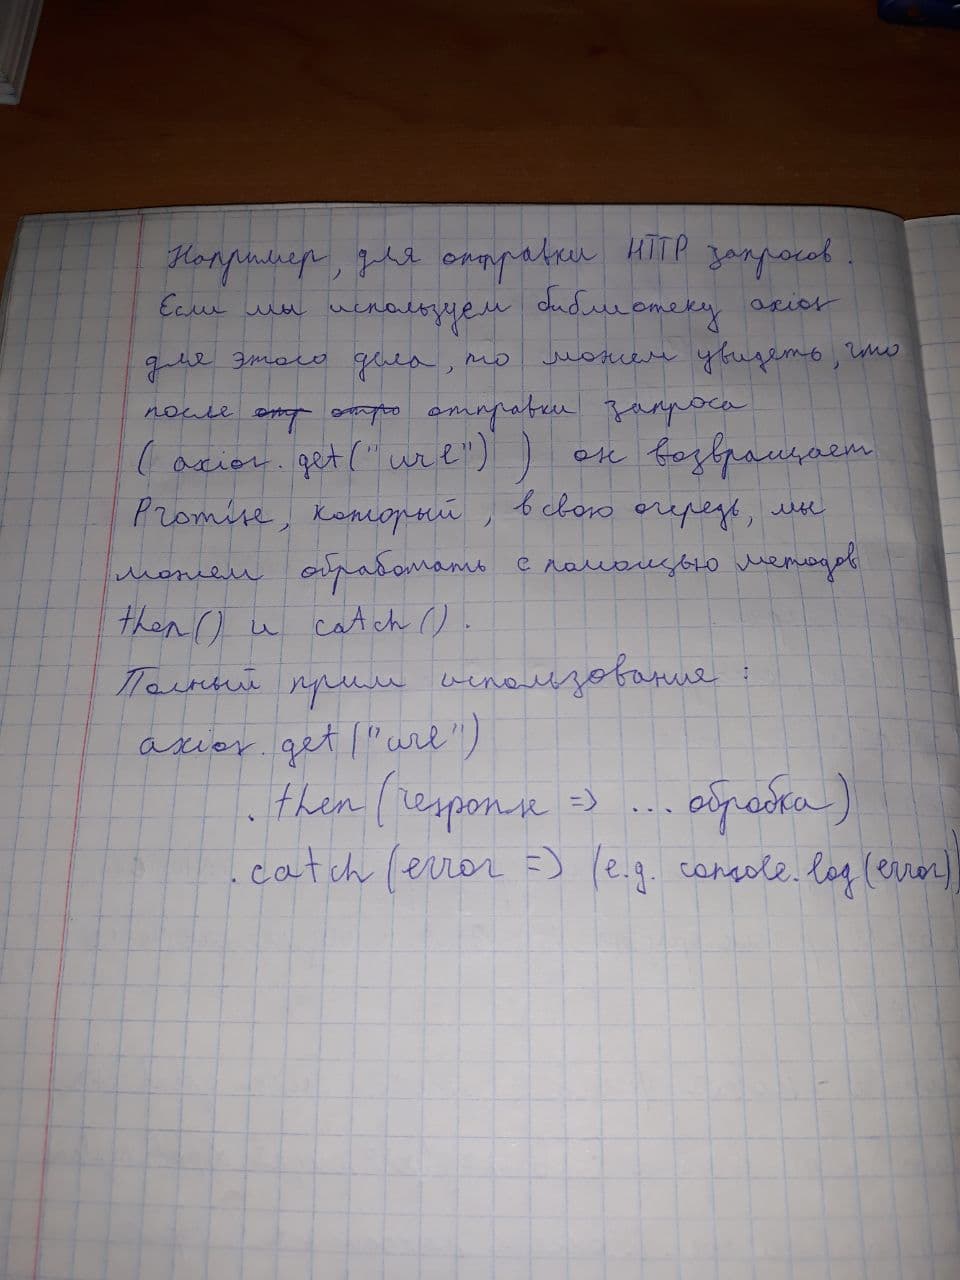 Например, для отправки HTTP запросов.
Если мы используем библиотеку axios
для этого дела, то можем увидеть, что
после отр отро отправки запроса
( axios.get("url") ) он возвращает
Promise, который, в свою очередь, мы
можем обработать с помощью методов
then() и catch().
Полный прим использования:
axios.get("url")
.then(response => ... обробка)
.catch(error => (e.g. console.log(error))